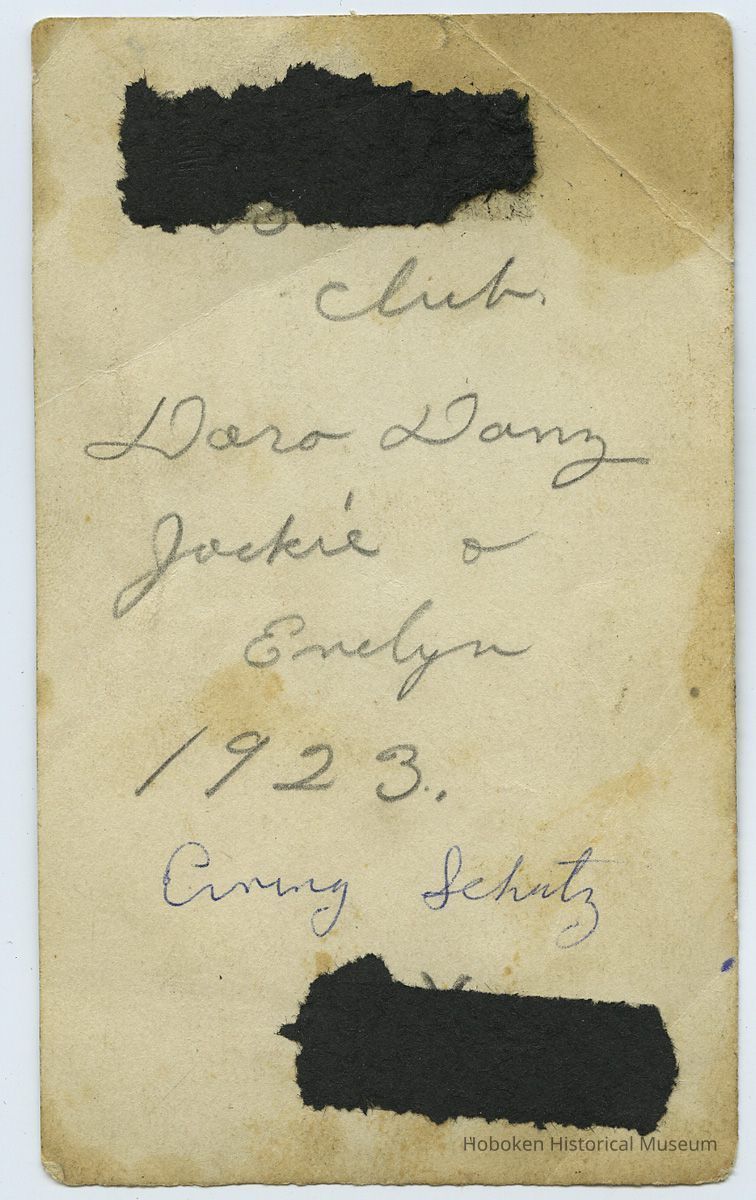 club.
Doro Danz
Jackie &
Evelyn
1923.
Erving Schutz
Hoboken Historical Museum